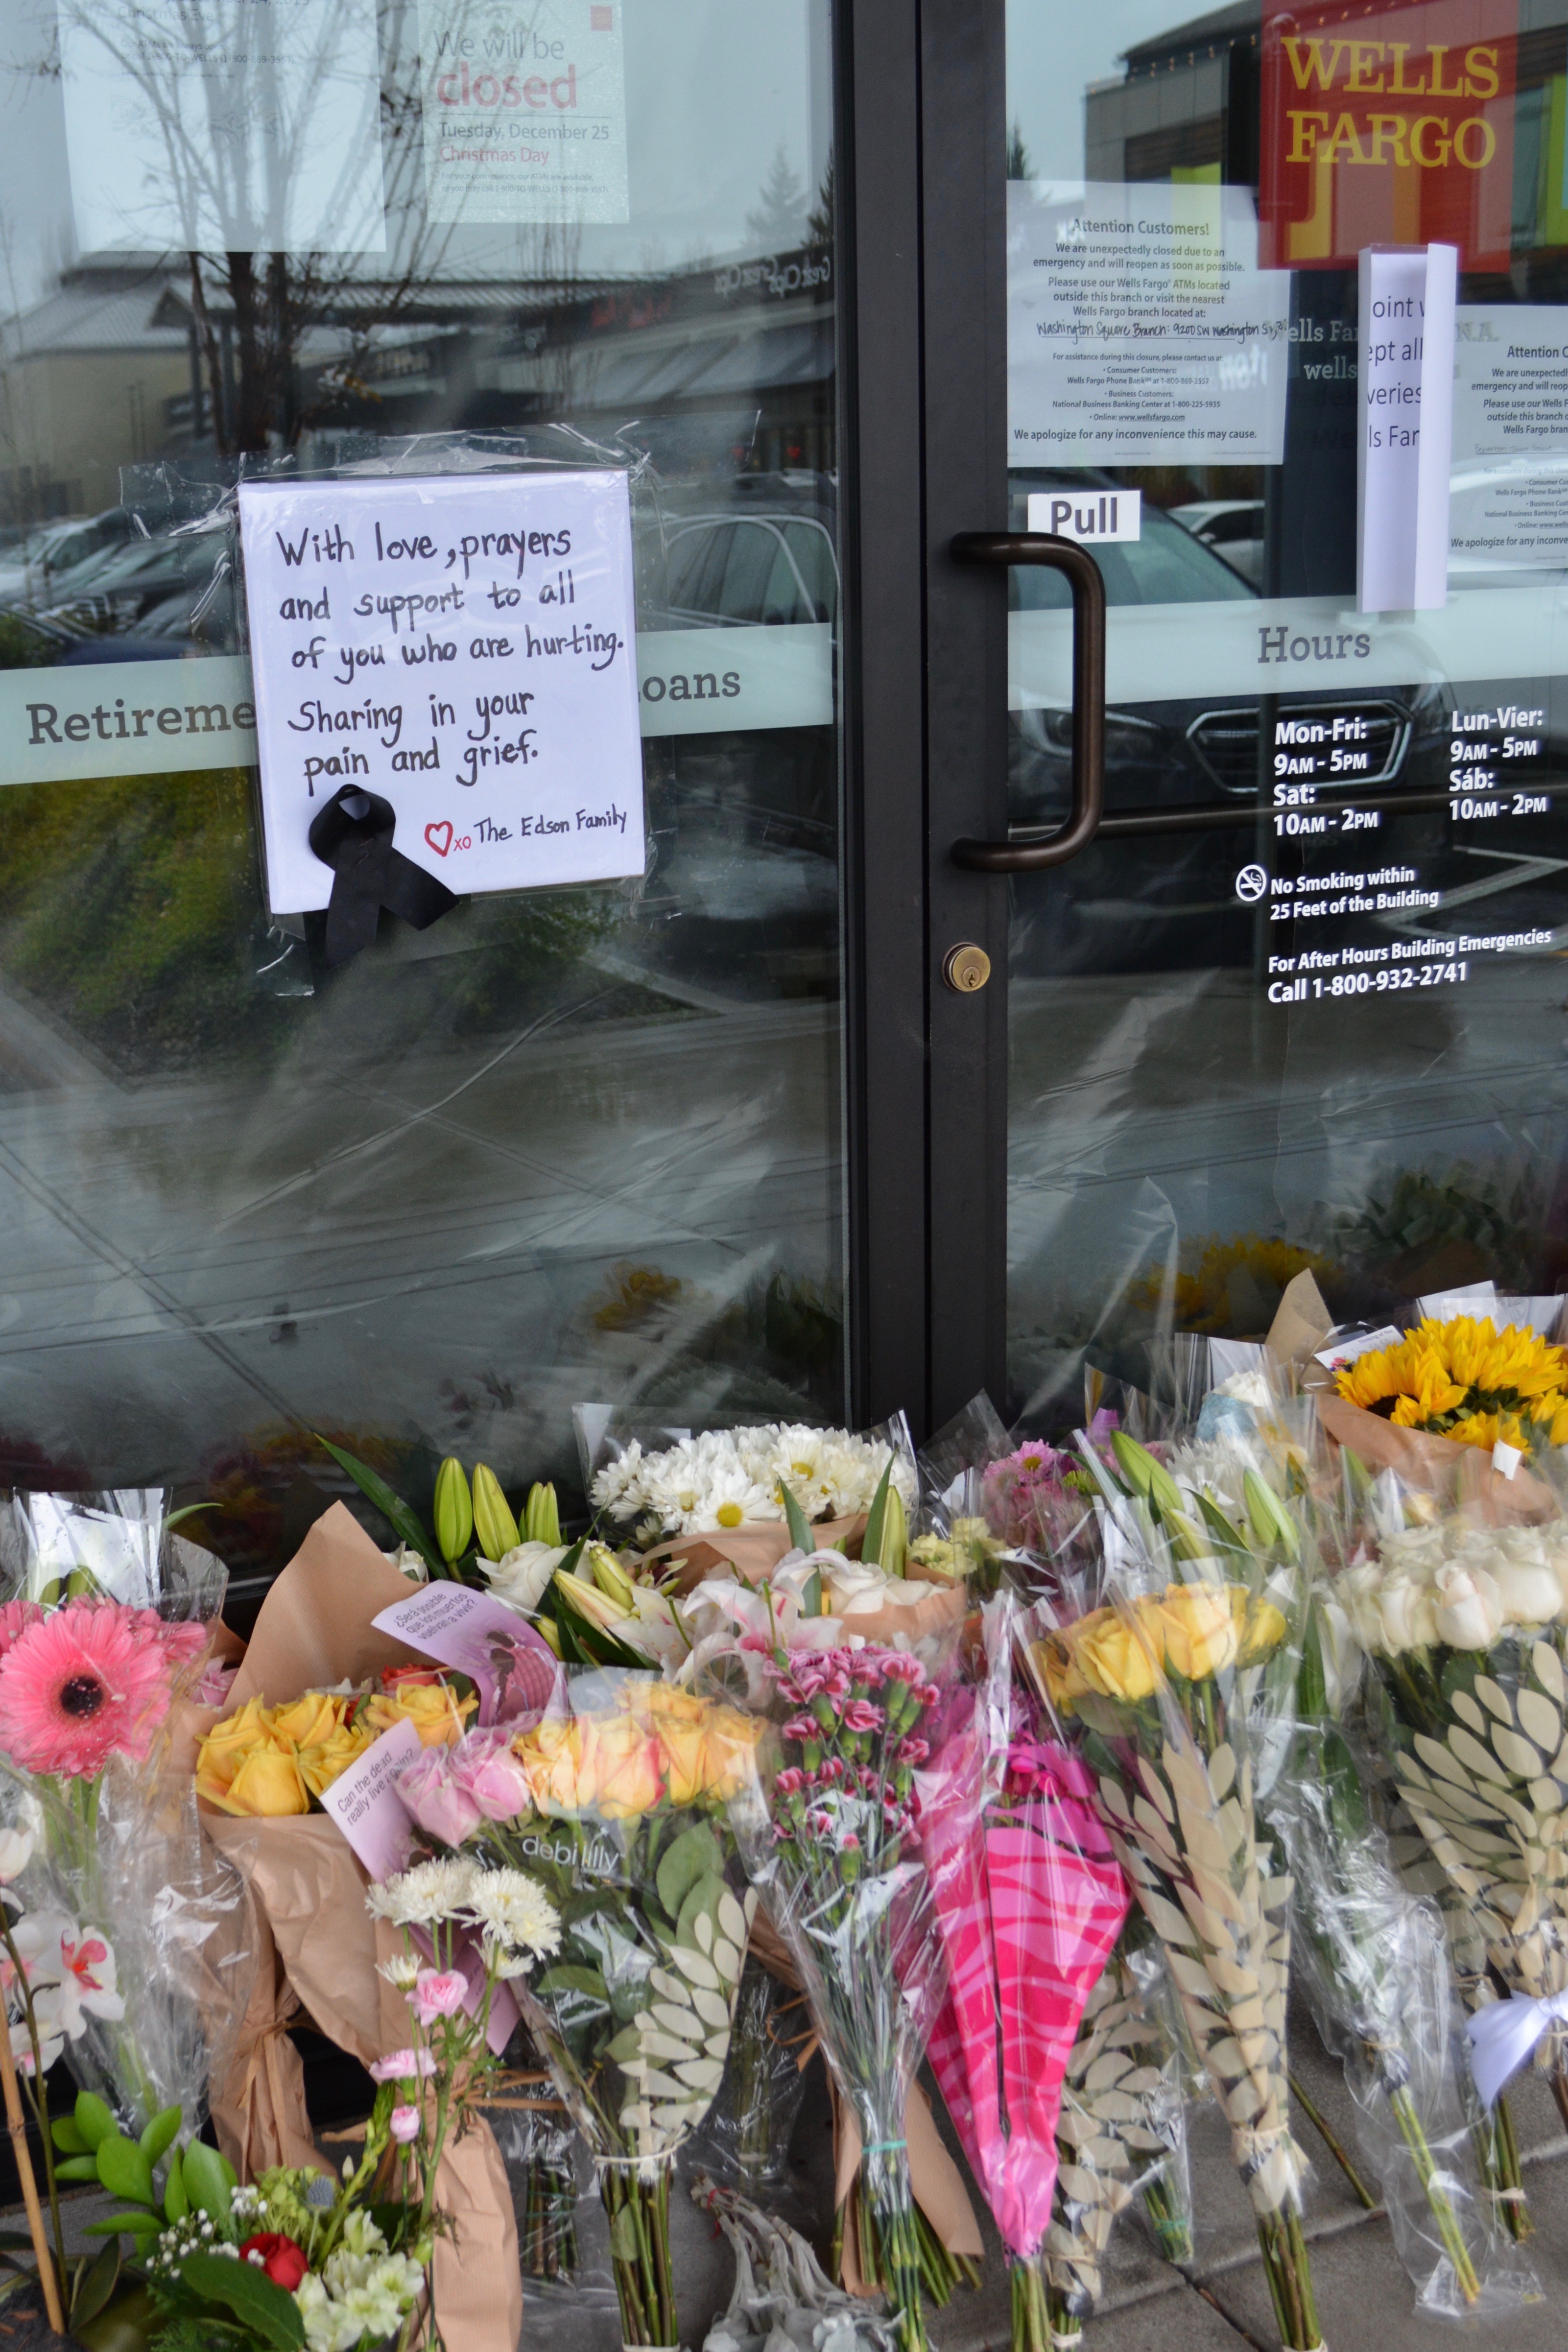 Christmas Eve
We will be
closed
Tuesday, December 25
Christmas Day
WELLS
FARGO
Attention Customers!
We are unexpectedly closed due to an
emergency and will reopen as soon as possible.
Please use our Wells Fargo® ATMs located
outside this branch or visit the nearest
Wells Fargo branch located at:
Washington Square Branch: 9200 SW Washington Sq
For assistance during this closure, please contact us at
• Consumer Customers:
Wells Fargo Phone Bank℠ at 1-800-869-3557
• Business Customers:
National Business Banking Center at 1-800-225-5935
• Online: www.wellsfargo.com
We apologize for any inconvenience this may cause.
ells Far
N.A.
wells
oint
ept all
veries
ls Far
Attention C
We are unexpectedl
emergency and will reop
Please use our Wells F
outside this branch o
Wells Fargo bran
• Consumer Cus
Wells Fargo Phone Ban
• Business Cust
National Business Banking Cen
• Online: www.wells
We apologize for any inconve
Pull
With love, prayers
and support to all
of you who are hurting.
Sharing in your
pain and grief.
xo The Edson Family
Retireme
oans
Hours
Mon-Fri:
9AM - 5PM
Sat:
10AM - 2PM
Lun-Vier:
9AM - 5PM
Sáb:
10AM - 2PM
No Smoking within
25 Feet of the Building
For After Hours Building Emergencies
Call 1-800-932-2741
¿Será posible
que los muertos
vuelvan a vivir?
Can the dead
really live again?
debi lilly